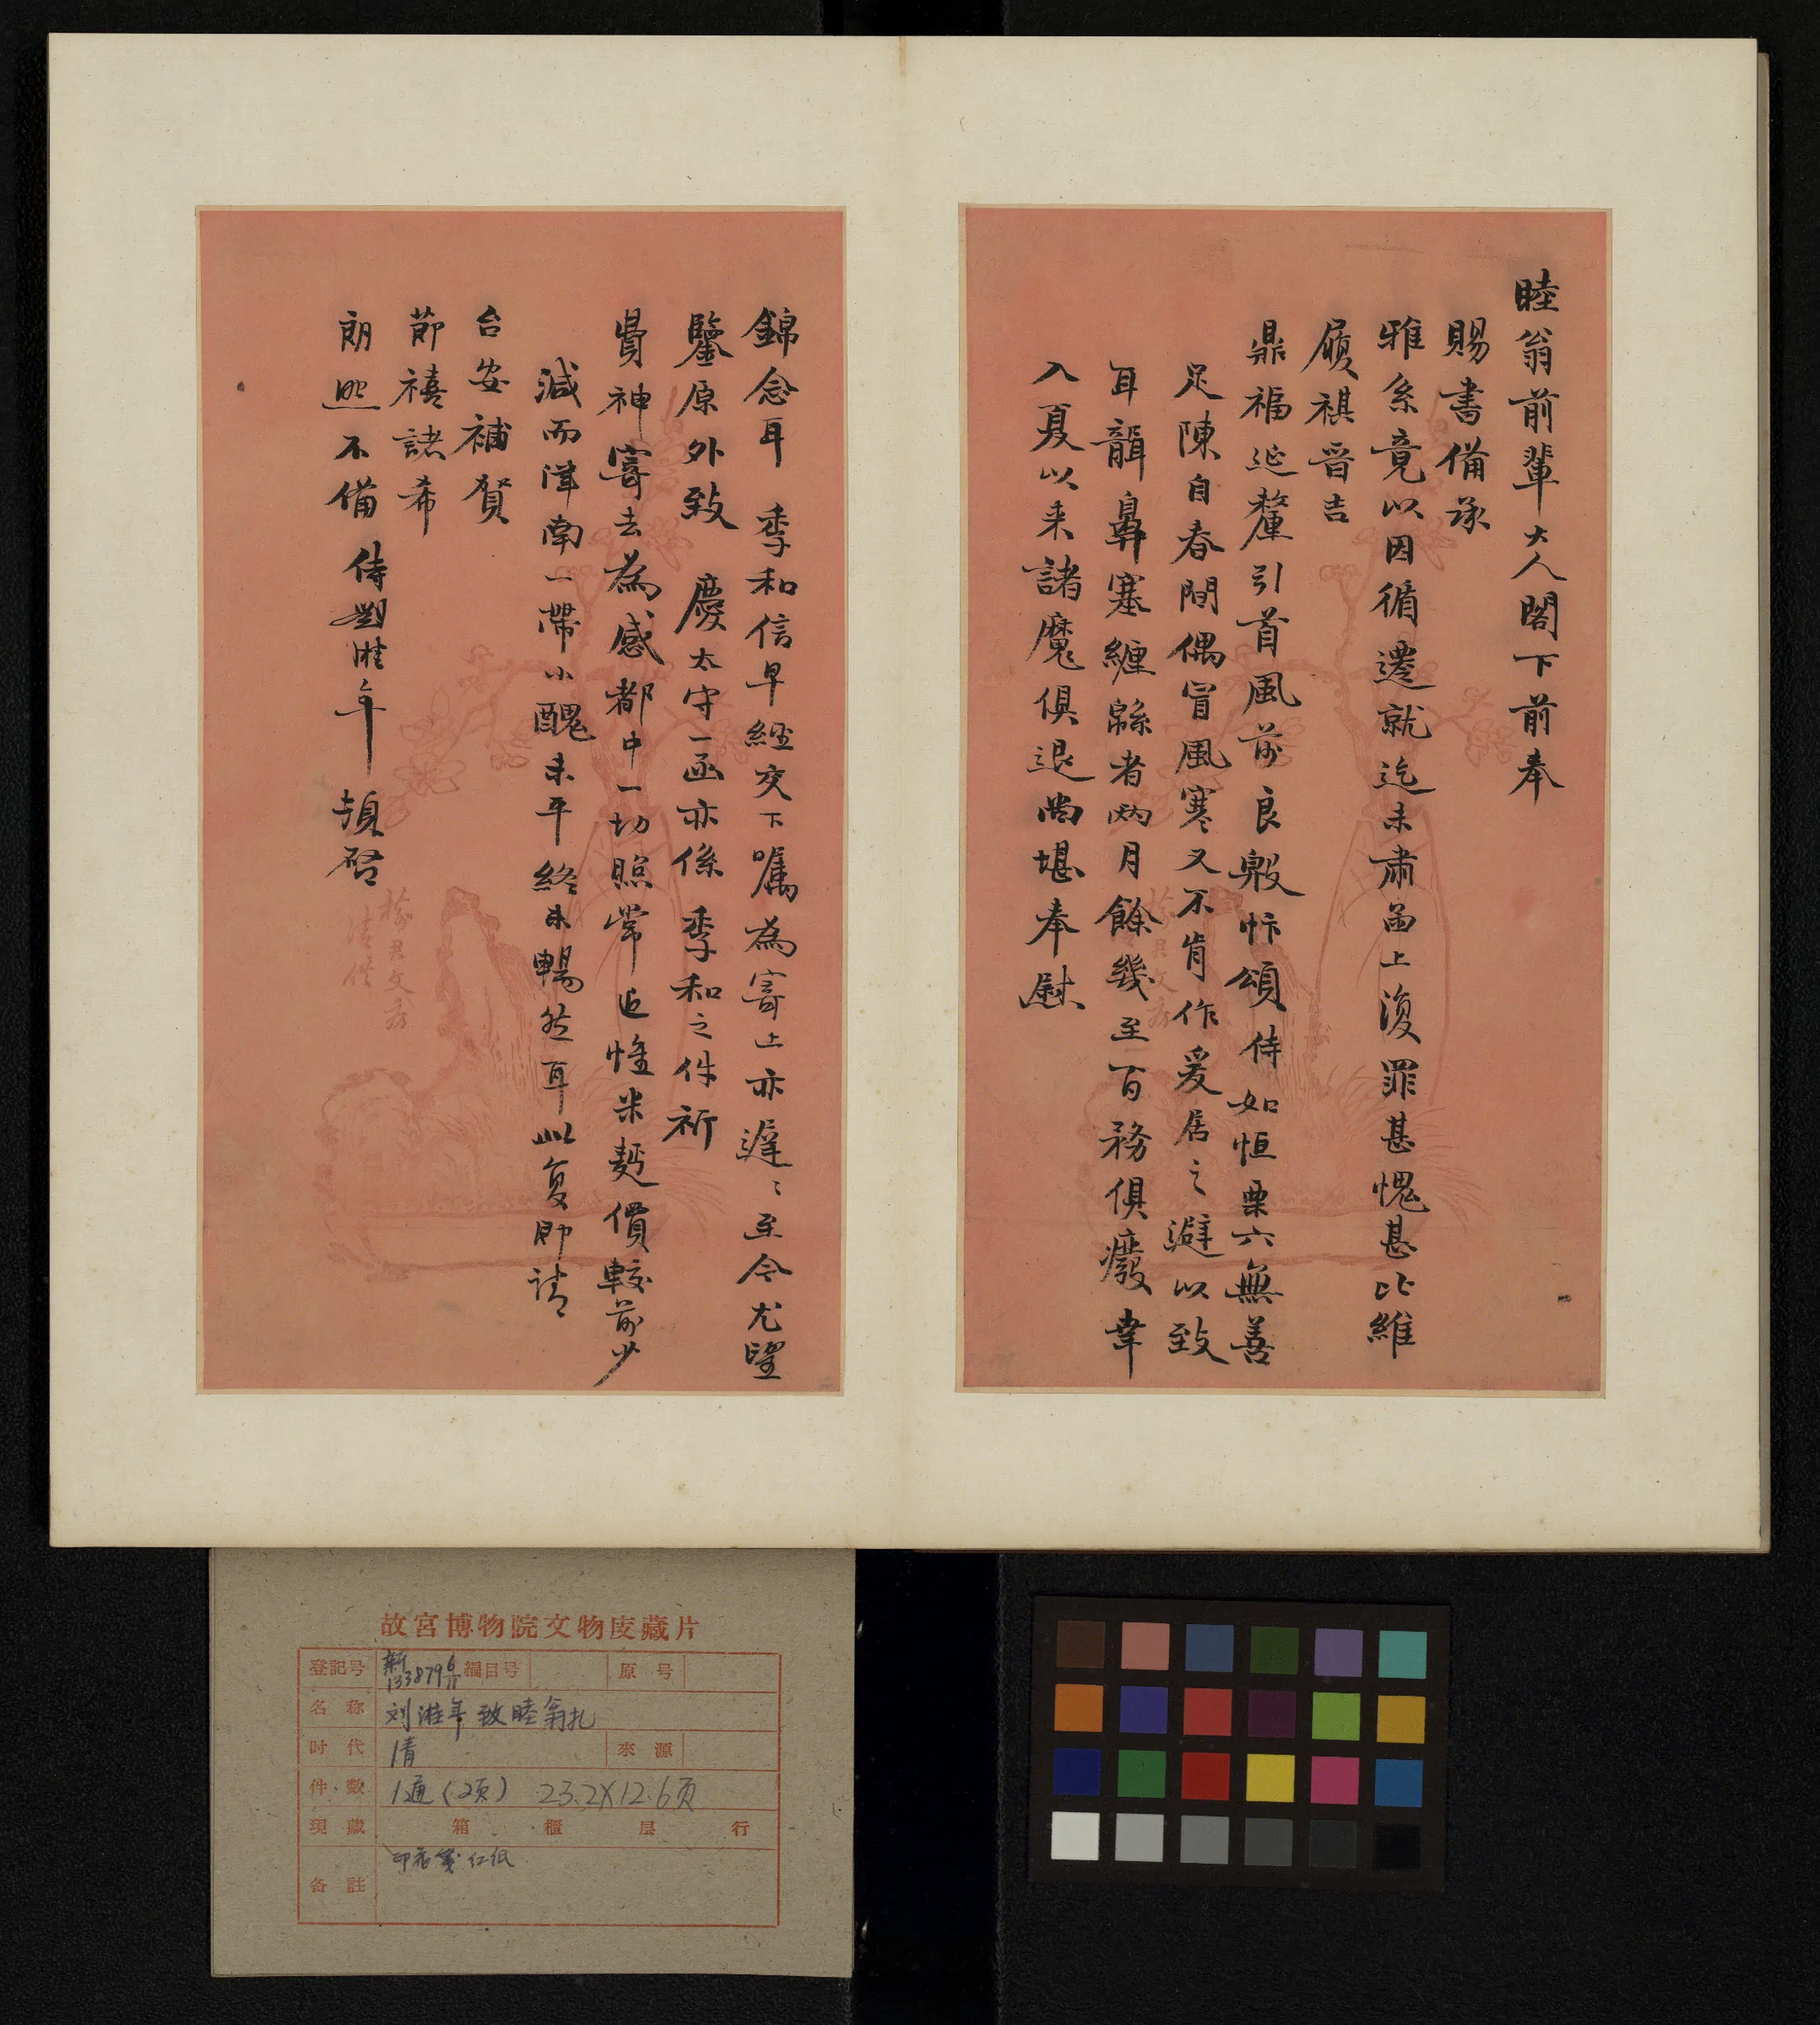 睦翁前輩大人閣下前奉
賜書備承
雅系竟以因循遷就迄未肅函上復罪甚愧甚比維
履祺晉吉
鼎福延釐引首風前良殷忭頌侍如恒栗六無善
足陳自春間偶冒風寒又不肯作爰居之避以致
耳聾鼻塞纏緜者兩月餘幾至百務俱廢幸
入夏以来諸魔俱退尚堪奉慰
錦念耳 季和信早經交下囑為寄上亦遲〻至今尤望
鑒原外致 慶太守一函亦係 季和之件祈
費神寄去為感都中一切照常近惟米麵價較前少
減而津南一帶小醜未平終未暢然耳此复即請
台安補賀
節禧諸希
朗照不備 侍劉淮年 頓啓
故宮博物院文物庋藏片
登記号 新133879 6/11 編目号 原号
名称 刘淮年致睦翁札
时代 清 來源
件数 1通(2页) 23.2X12.6页
現藏 箱 櫃 层 行
备註 印花笺红纸